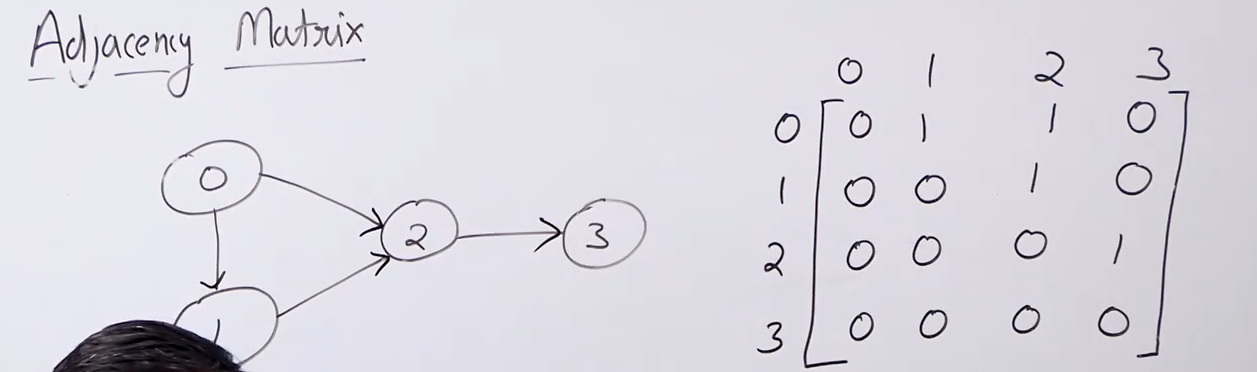 Adjacency Matrix
0 1 2 3
0 0 1 1 0
1 0 0 1 0
2 0 0 0 1
3 0 0 0 0
0
2 3
1